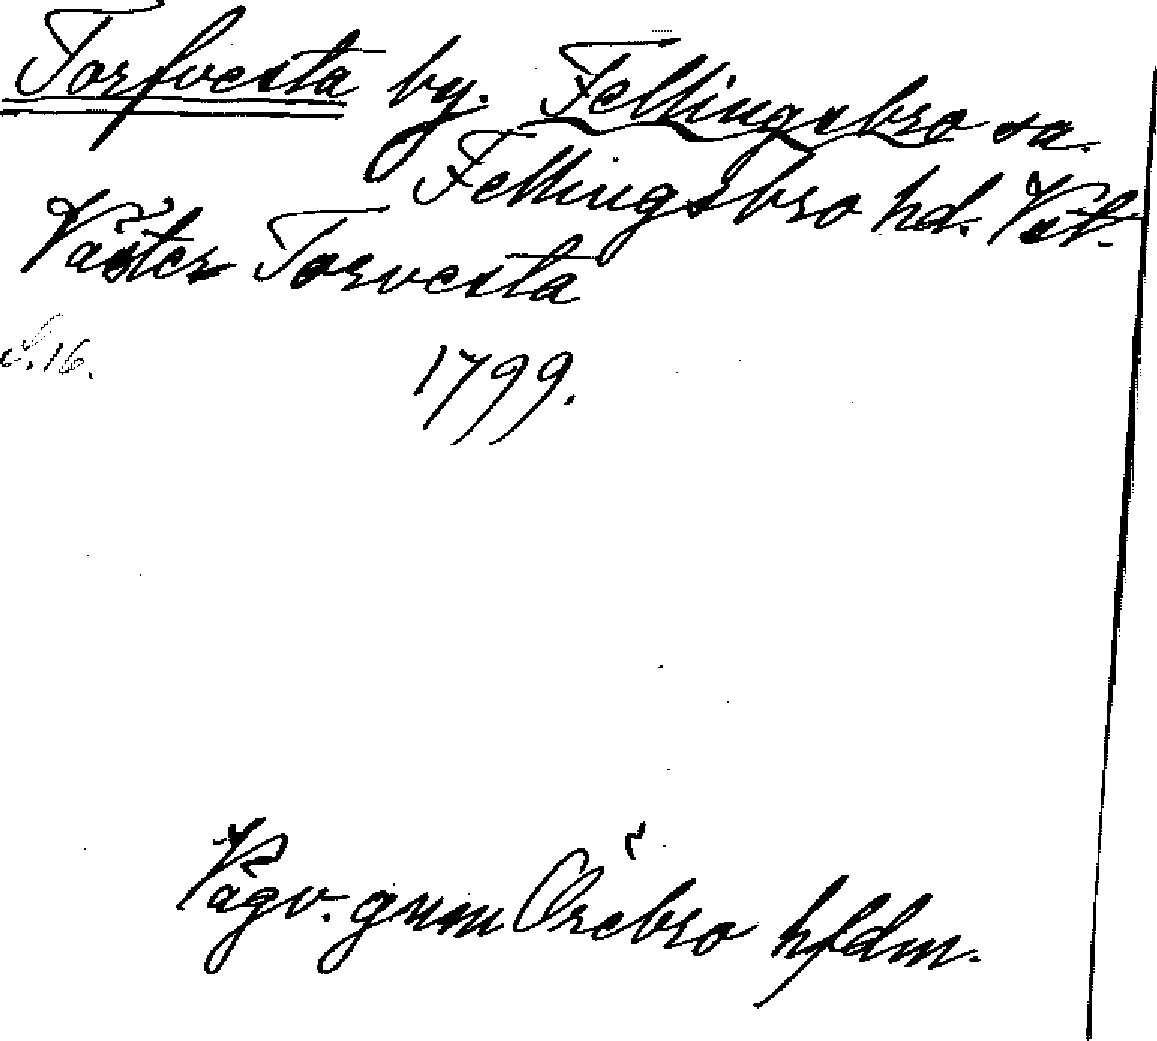 Torfvesta by. Fellingsbro sn.
Fellingsbro hd. Vstl.
Väster Torvesta
S. 16.
1799.
Vägv. gnm Örebro hfdm.